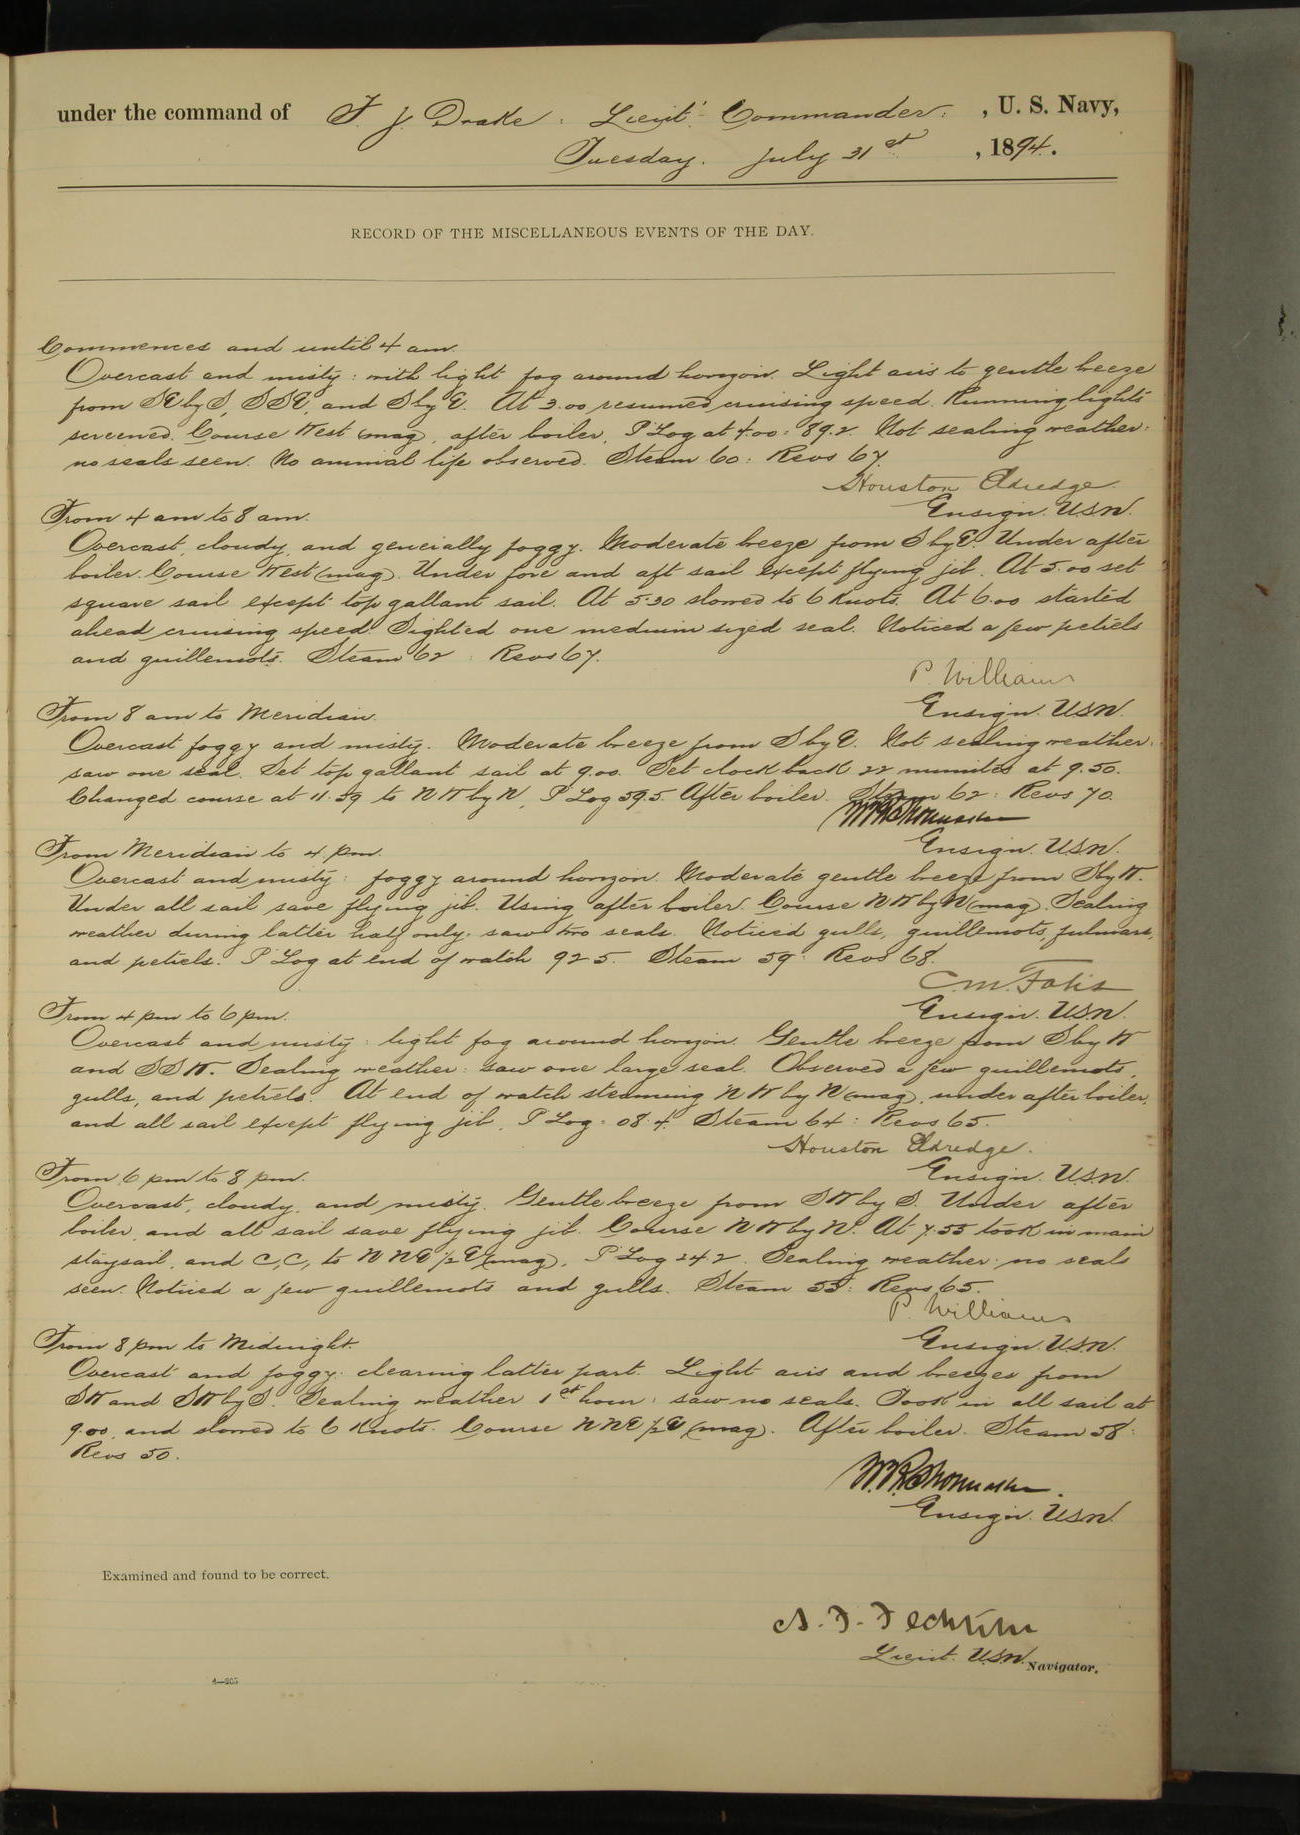 under the command of F. J. Drake : Lieut' Commander. , U. S. Navy,
Tuesday. July 31st , 1894.
RECORD OF THE MISCELLANEOUS EVENTS OF THE DAY.
Commences and until 4 am.
Overcast and misty: with light fog around horizon. Light airs to gentle breeze
from SE by S, SSE, and S by E. At 3.00 resumed cruising speed. Running lights
screened. Course West (mag), after boiler, P Log at 4.00: 89.2. Not sealing weather:
no seals seen. No animal life observed. Steam 60: Revs 67.
Houston Eldredge
Ensign. U.S.N.
From 4 am to 8 am.
Overcast, cloudy, and generally foggy. Moderate breeze from S by E. Under after
boiler. Course West (mag). Under fore and aft sail except flying jib. At 5.00 set
square sail except top gallant sail. At 5.30 slowed to 6 Knots. At 6.00 started
ahead cruising speed. Sighted one medium sized seal. Noticed a few petrels
and guillemots. Steam 62 : Revs 67.
P. Williams
Ensign. U.S.N.
From 8 am to Meridian.
Overcast foggy and misty. Moderate breeze from S by E. Not sealing weather:
saw one seal. Set top gallant sail at 9.00. Set clock back 22 minutes at 9.50.
Changed course at 11.59 to NW by N, P Log 59.5. After boiler. Steam 62: Revs 70.
Ensign. U.S.N.
From Meridian to 4 pm.
Overcast and misty: foggy around horizon. Moderate gentle breeze from S by W.
Under all sail save flying jib. Using after boiler. Course NW by N (mag). Sealing
weather during latter half only: saw two seals. Noticed gulls, guillemots, fulmars,
and petrels. P Log at end of watch 92 5. Steam 59: Revs 68.
C. M.
Ensign. U.S.N.
From 4 pm to 6 pm.
Overcast and misty: light fog around horizon. Gentle breeze from S by W
and SSW. Sealing weather: saw one large seal. Observed a few guillemots,
gulls, and petrels. At end of watch steaming NW by N (mag), under after boiler,
and all sail except flying jib. P Log: 08.4. Steam 64: Revs 65.
Houston Eldredge.
Ensign. U.S.N.
From 6 pm to 8 pm.
Overcast, cloudy, and misty. Gentle breeze from SW by S. Under after
boiler, and all sail save flying jib. Course NW by N. At 7.55 took in main
staysail, and C, C, to NNE ½ E (mag), P Log 24.2. Sealing weather: no seals
seen. Noticed a few guillemots and gulls. Steam 55: Revs 65.
P. Williams
Ensign. U.S.N.
From 8 pm to Midnight.
Overcast and foggy: clearing latter part. Light airs and breezes from
SW and SW by S. Sealing weather 1st hour: saw no seals. Took in all sail at
9.00, and slowed to 6 Knots. Course NNE ½ E (mag). After boiler. Steam 58:
Revs 50.
Ensign. U.S.N.
Examined and found to be correct.
A. F. Fechteler
Lieut. U.S.N. Navigator.
4—205